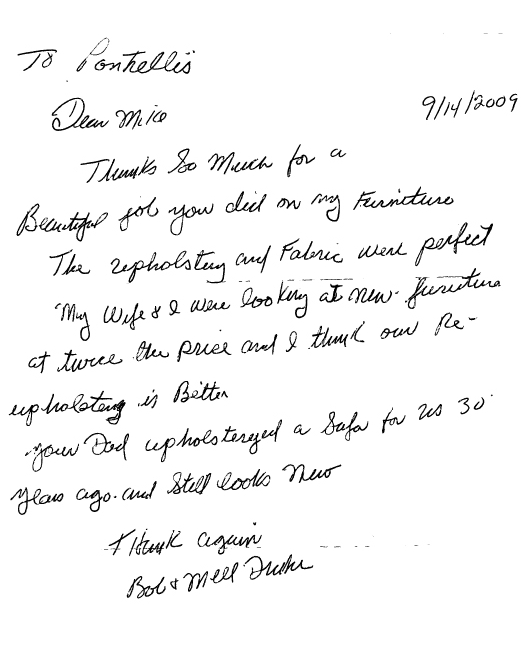 To Pontrellis
9/14/2009
Dear Mike
Thanks So Much for a
Beautiful job you did on my Furniture
The upholstery and Fabric were perfect
My Wife & I were looking at new furniture
at twice the price and I think our Re-
upholsteng is Better
your Dad upholstereyed a Sofa for us 30
years ago. and Still looks New
Thank again
Bob & Mell